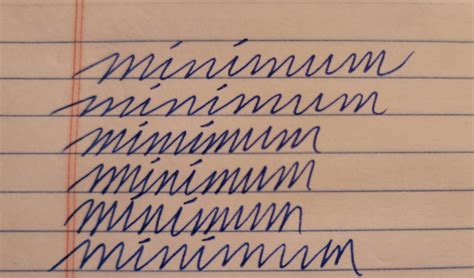 minimum
minimum
minimum
minimum
minimum
minimum